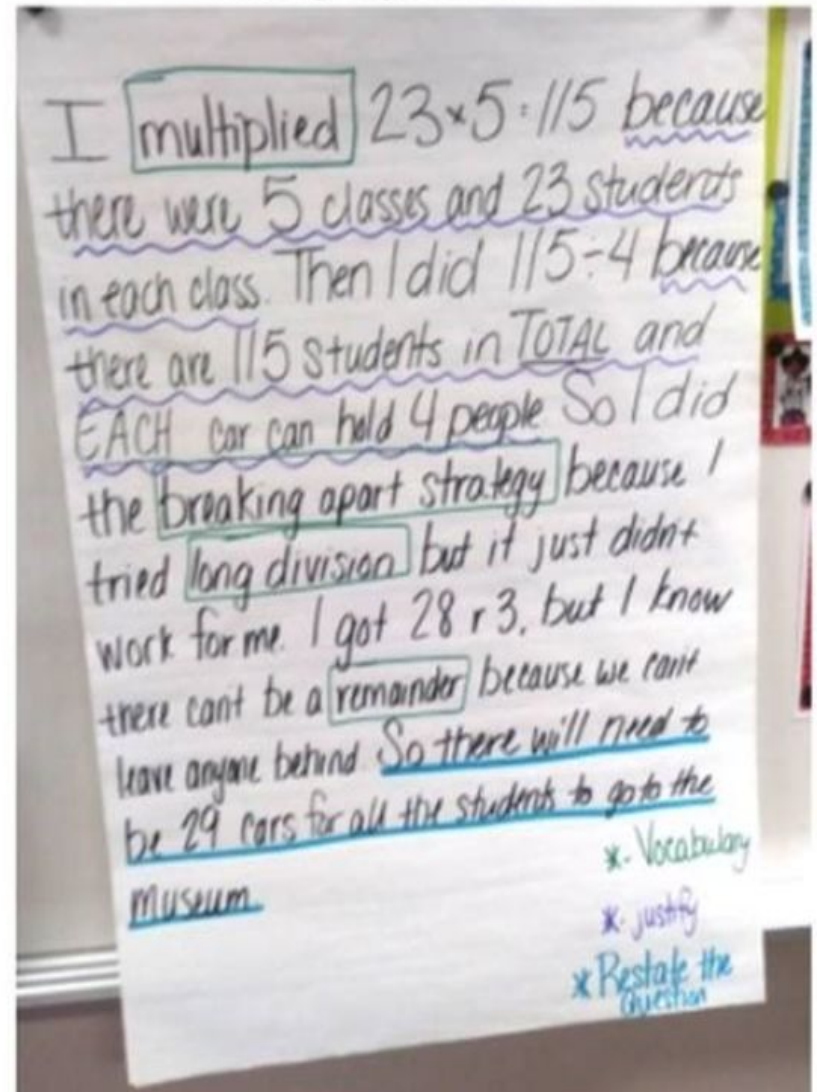 I multiplied 23×5=115 because
there were 5 classes and 23 students
in each class. Then I did 115÷4 because
there are 115 students in TOTAL and
EACH car can hold 4 people. So I did
the breaking apart strategy because I
tried long division but it just didn't
work for me. I got 28 r 3, but I know
there can't be a remainder because we can't
leave anyone behind. So there will need to
be 29 cars for all the students to go to the
museum.
*- Vocabulary
*- justify
* Restate the
Question